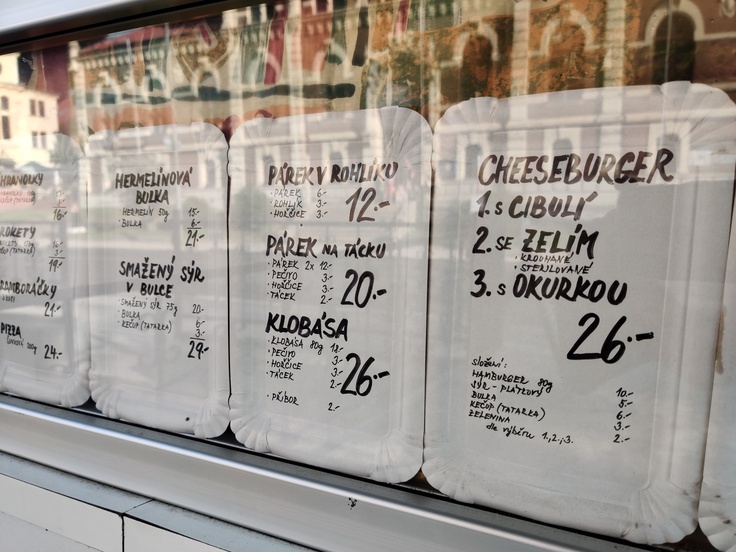 HRANOLKY
16.-
19.-
21.-
PIZZA
24.-
HERMELÍNOVÁ
BULKA
HERMELÍN 50g 15.-
· BULKA 6.-
21.-
SMAŽENÝ SÝR
V BULCE
· SMAŽENÝ SÝR 75g 20.-
· BULKA 6.-
· KEČUP (TATARKA) 3.-
29.-
PÁREK V ROHLÍKU
· PÁREK 6.-
· ROHLÍK 3.-
· HOŘČICE 3.-
12.-
PÁREK NA TÁCKU
· PÁREK 2x 12.-
· PEČIVO 3.-
· HOŘČICE 3.-
· TÁCEK 2.-
20.-
KLOBÁSA
· KLOBÁSA 80g 18.-
· PEČIVO 3.-
· HOŘČICE 3.-
· TÁCEK 2.-
26.-
· PŘÍBOR 2.-
CHEESEBURGER
1. S CIBULÍ
2. SE ZELÍM
· KROUHANÉ
· STERILOVANÉ
3. S OKURKOU
26.-
složení:
HAMBURGER 80g 10.-
SÝR - PLÁTKOVÝ 5.-
BULKA 6.-
KEČUP (TATARKA) 3.-
ZELENINA 2.-
dle výběru 1.,2.,3.